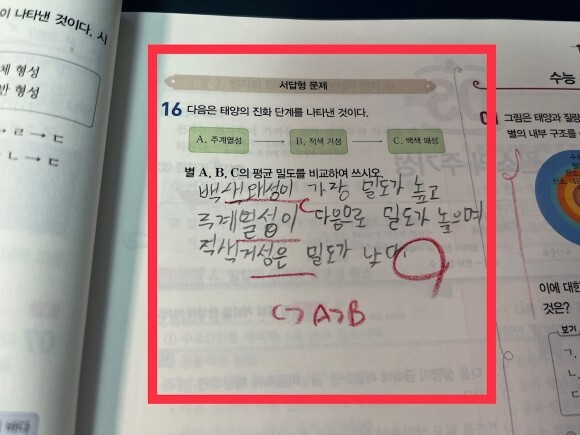 이 나타낸 것이다. 시
체 형성
반 형성
ㄹ → ㄷ
ㄴ → ㄷ
서답형 문제
16 다음은 태양의 진화 단계를 나타낸 것이다.
A. 주계열성 → B. 적색 거성 → C. 백색 왜성
별 A, B, C의 평균 밀도를 비교하여 쓰시오.
백색왜성이 가장 밀도가 높고
주계열성이 다음으로 밀도가 높으며
적색거성은 밀도가 낮다.
C > A > B
수능
그림은 태양과 질량
별의 내부 구조를
이에 대한
것은?
보기
ㄱ.
ㄴ.